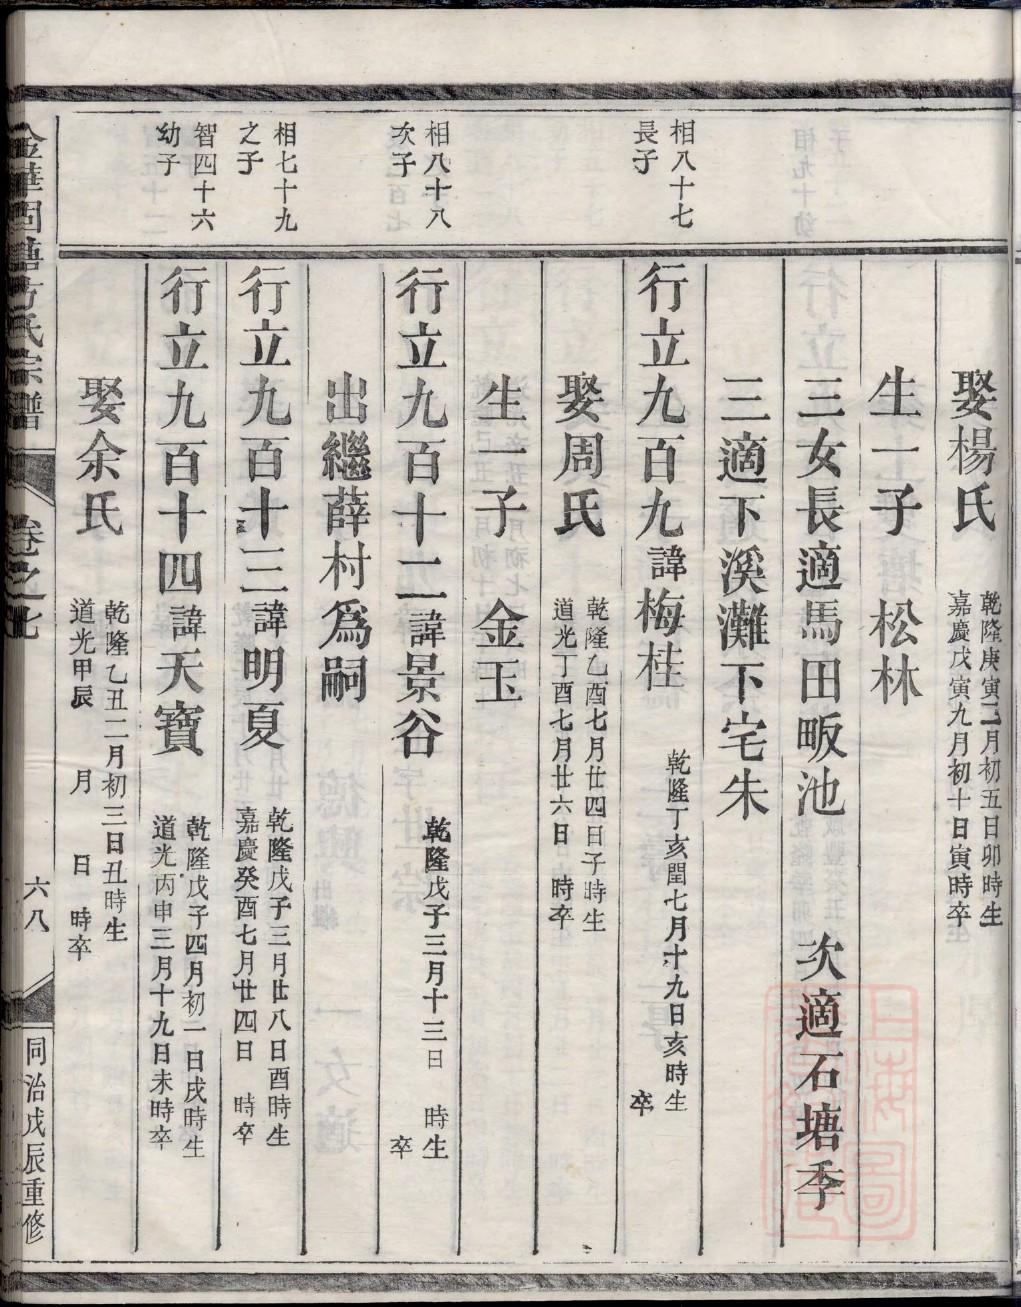 娶楊氏
乾隆庚寅二月初五日卯時生
嘉慶戊寅九月初十日寅時卒
生一子　松林
三女長適馬田畈池　次適石塘季
三適下溪灘下宅朱
相八十七
長子
行立九百九諱梅桂
乾隆丁亥閏七月十九日亥時生
卒
娶周氏
乾隆乙酉七月廿四日子時生
道光丁酉七月廿六日　時卒
生一子　金玉
相八十八
次子
行立九百十二諱景谷
乾隆戊子三月十三日　時生
卒
出繼薛村爲嗣
相七十九
之子
行立九百十三諱明夏
乾隆戊子三月廿八日酉時生
嘉慶癸酉七月廿四日　時卒
智四十六
幼子
行立九百十四諱天寶
乾隆戊子四月初一日戌時生
道光丙申三月十九日未時卒
娶余氏
乾隆乙丑二月初三日丑時生
道光甲辰　月　日　時卒
金華固塘方氏宗譜
卷之七
六八
同治戊辰重修